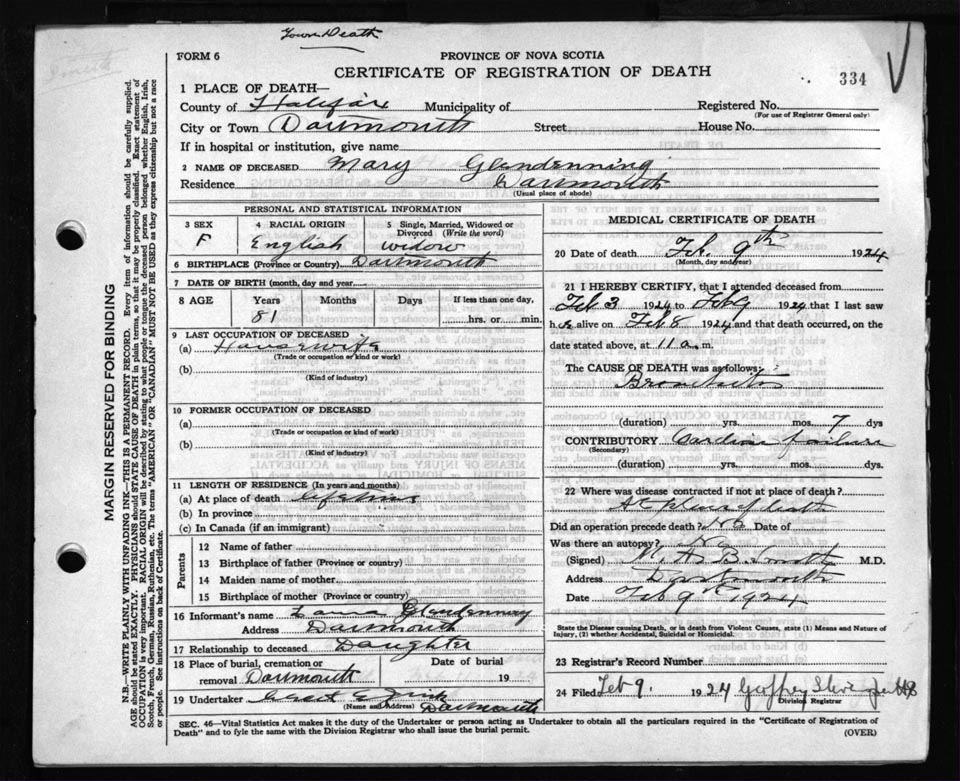 Town Death
FORM 6
PROVINCE OF NOVA SCOTIA
CERTIFICATE OF REGISTRATION OF DEATH
334
1 PLACE OF DEATH—
County of Halifax Municipality of Registered No.
(For use of Registrar General only)
City or Town Dartmouth Street House No.
If in hospital or institution, give name
2 NAME OF DECEASED Mary Glendenning
Residence Dartmouth
(Usual place of abode)
PERSONAL AND STATISTICAL INFORMATION
3 SEX 4 RACIAL ORIGIN 5 Single, Married, Widowed or
Divorced (Write the word)
F English widow
6 BIRTHPLACE (Province or Country) Dartmouth
7 DATE OF BIRTH (month, day and year)
8 AGE Years Months Days If less than one day,
81 hrs. or min.
9 LAST OCCUPATION OF DECEASED
(a) Housewife
(Trade or occupation or kind or work)
(b)
(Kind of industry)
10 FORMER OCCUPATION OF DECEASED
(a)
(Trade or occupation or kind of work)
(b)
(Kind of industry)
11 LENGTH OF RESIDENCE (In years and months)
(a) At place of death lifetime
(b) In province
(c) In Canada (if an immigrant)
Parents
12 Name of father
13 Birthplace of father (Province or country)
14 Maiden name of mother
15 Birthplace of mother (Province or country)
16 Informant's name Laura Glendenning
Address Dartmouth
17 Relationship to deceased Daughter
18 Place of burial, cremation or Date of burial
removal Dartmouth 19
19 Undertaker
(Name and Address) Dartmouth
MEDICAL CERTIFICATE OF DEATH
20 Date of death Feb. 9th 1924
(Month, day and year)
21 I HEREBY CERTIFY, that I attended deceased from
Feb 3 1924 to Feb 9 1924 that I last saw
h er alive on Feb 8 1924 and that death occurred, on the
date stated above, at 11 a. m.
The CAUSE OF DEATH was as follows:
Bronchitis
(duration) yrs. mos. 7 dys
CONTRIBUTORY Cardiac failure
(Secondary)
(duration) yrs. mos. dys.
22 Where was disease contracted if not at place of death?
At place of death
Did an operation precede death? No Date of
Was there an autopsy? No
(Signed) B. Smith M.D.
Address Dartmouth
Date Feb 9th 1924
State the Disease causing Death, or in death from Violent Causes, state (1) Means and Nature of
Injury, (2) whether Accidental, Suicidal or Homicidal.
23 Registrar's Record Number
24 Filed Feb 9. 1924 Geoffrey
Division Registrar
SEC. 46—Vital Statistics Act makes it the duty of the Undertaker or person acting as Undertaker to obtain all the particulars required in the "Certificate of Registration of
Death" and to fyle the same with the Division Registrar who shall issue the burial permit.
(OVER)
MARGIN RESERVED FOR BINDING
N.B.—WRITE PLAINLY WITH UNFADING INK—THIS IS A PERMANENT RECORD. Every item of information should be carefully supplied.
AGE should be stated EXACTLY. PHYSICIANS should STATE CAUSE OF DEATH in plain terms, so that it may be properly classified. Exact statement of
OCCUPATION is very important. RACIAL ORIGIN will be described by stating to what people or tongue the deceased person belonged, whether English, Irish,
Scotch, French, German, Russian, Ruthenian, etc. The terms "AMERICAN" OR "CANADIAN" MUST NOT BE USED as they express citizenship but not a race
or people. See instructions on back of Certificate.